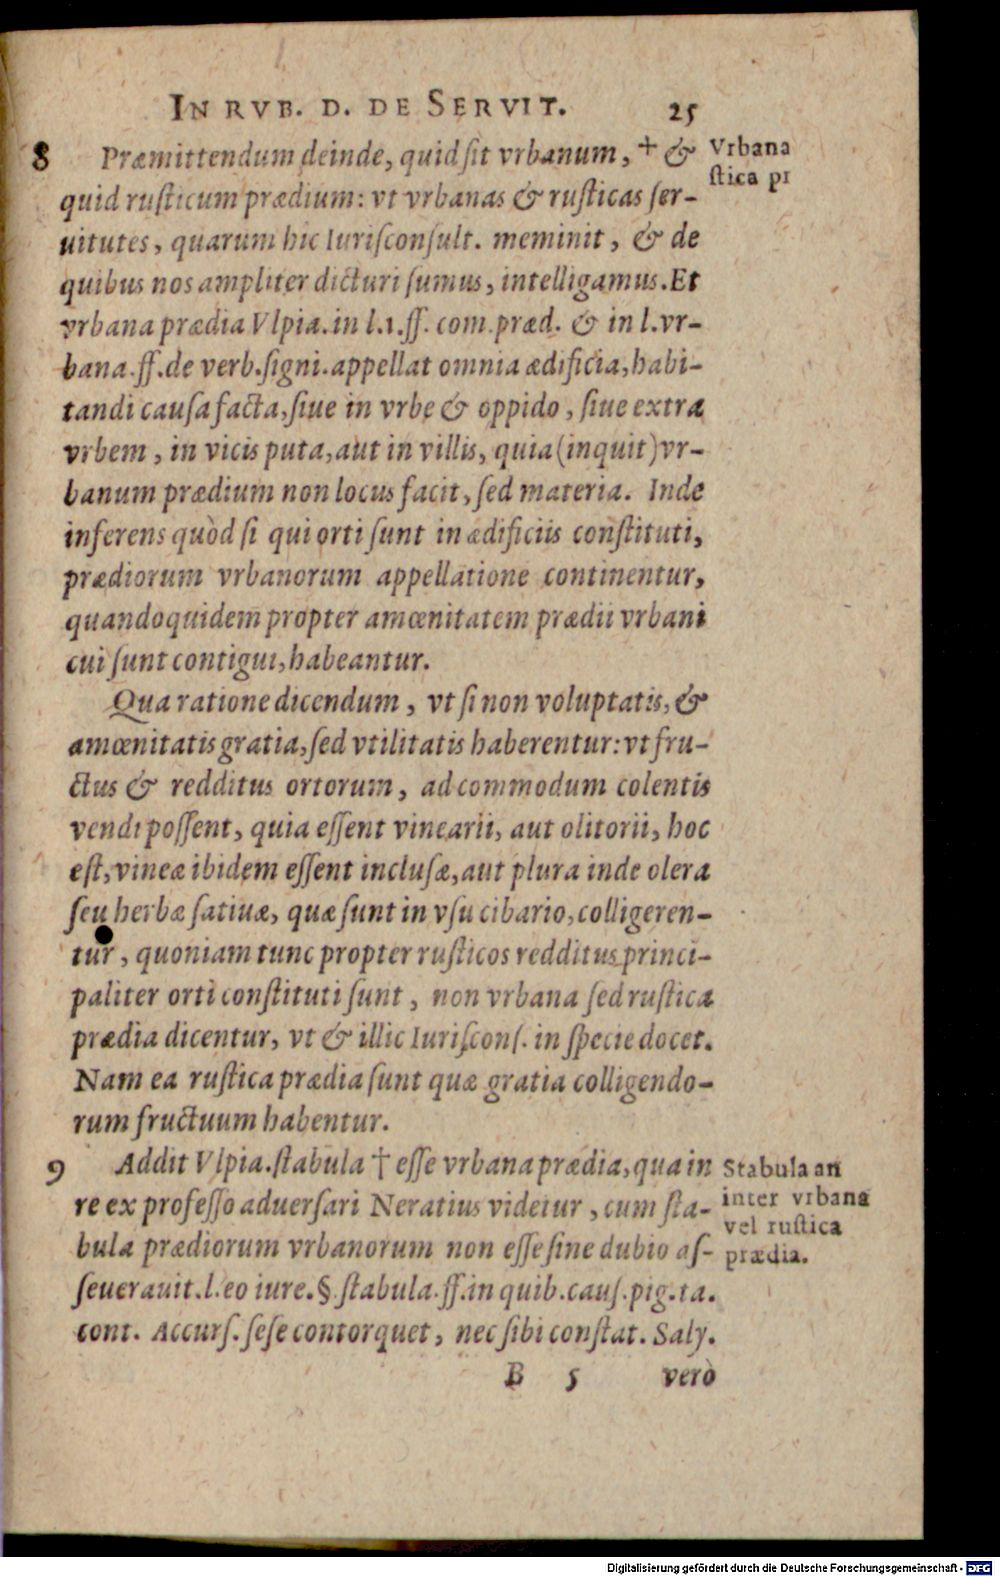 IN RVB. D. DE SERVIT. 25
8 Præmittendum deinde, quid sit vrbanum, + &
Vrbana
stica pr
quid rusticum prædium: vt vrbanas & rusticas ser-
uitutes, quarum hic Iurisconsult. meminit, & de
quibus nos ampliter dicturi sumus, intelligamus. Et
vrbana prædia Vlpia. in l.1. ff. com. præd. & in l. vr-
bana. ff. de verb. signi. appellat omnia ædificia, habi-
tandi causa facta, siue in vrbe & oppido, siue extra
vrbem, in vicis puta, aut in villis, quia (inquit) vr-
banum prædium non locus facit, sed materia. Inde
inferens quòd si qui orti sunt in ædificiis constituti,
prædiorum vrbanorum appellatione continentur,
quandoquidem propter amœnitatem prædii vrbani
cui sunt contigui, habeantur.
Qua ratione dicendum, vt si non voluptatis, &
amœnitatis gratia, sed vtilitatis haberentur: vt fru-
ctus & redditus ortorum, ad commodum colentis
vendi possent, quia essent vinearii, aut olitorii, hoc
est, vineæ ibidem essent inclusæ, aut plura inde olera
seu herbæ satiuæ, quæ sunt in vsu cibario, colligeren-
tur, quoniam tunc propter rusticos redditus princi-
paliter orti constituti sunt, non vrbana sed rustica
prædia dicentur, vt & illic Iuriscons. in specie docet.
Nam ea rustica prædia sunt quæ gratia colligendo-
rum fructuum habentur.
9 Addit Vlpia. stabula † esse vrbana prædia, qua in
re ex professo aduersari Neratius videtur, cum sta-
bula prædiorum vrbanorum non esse sine dubio as-
seuerauit. l. eo iure. §. stabula. ff. in quib. caus. pig. ta.
cont. Accurs. sese contorquet, nec sibi constat. Saly.
Stabula an
inter vrbana
vel rustica
prædia.
B 5 verò
Digitalisierung gefördert durch die Deutsche Forschungsgemeinschaft - DFG